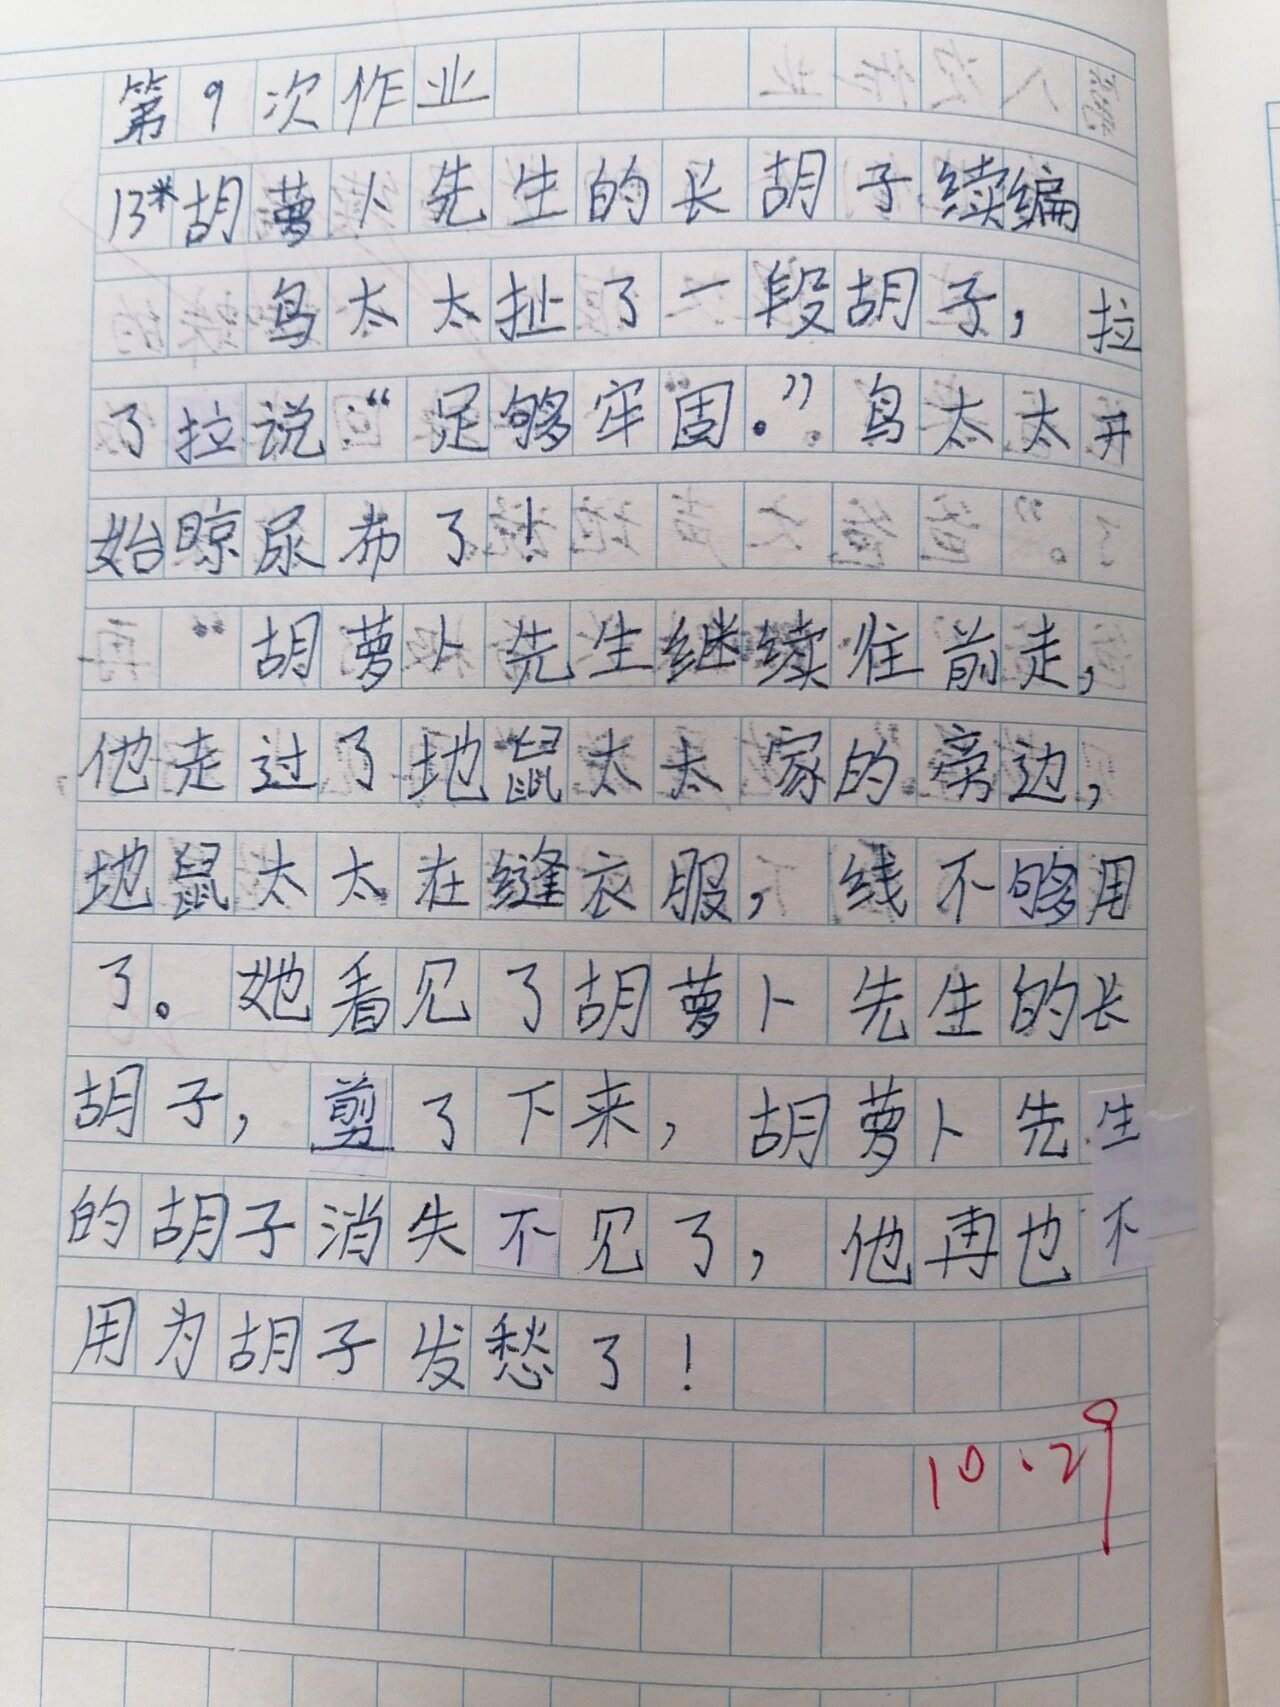 第9次作业
13*胡萝卜先生的长胡子续编
鸟太太扯了一段胡子，拉
了拉说“足够牢固.”鸟太太开
始晾尿布了！
胡萝卜先生继续往前走，
他走过了地鼠太太家的旁边，
地鼠太太在缝衣服，线不够用
了。她看见了胡萝卜先生的长
胡子，剪了下来，胡萝卜先生
的胡子消失不见了，他再也不
用为胡子发愁了！
10.29